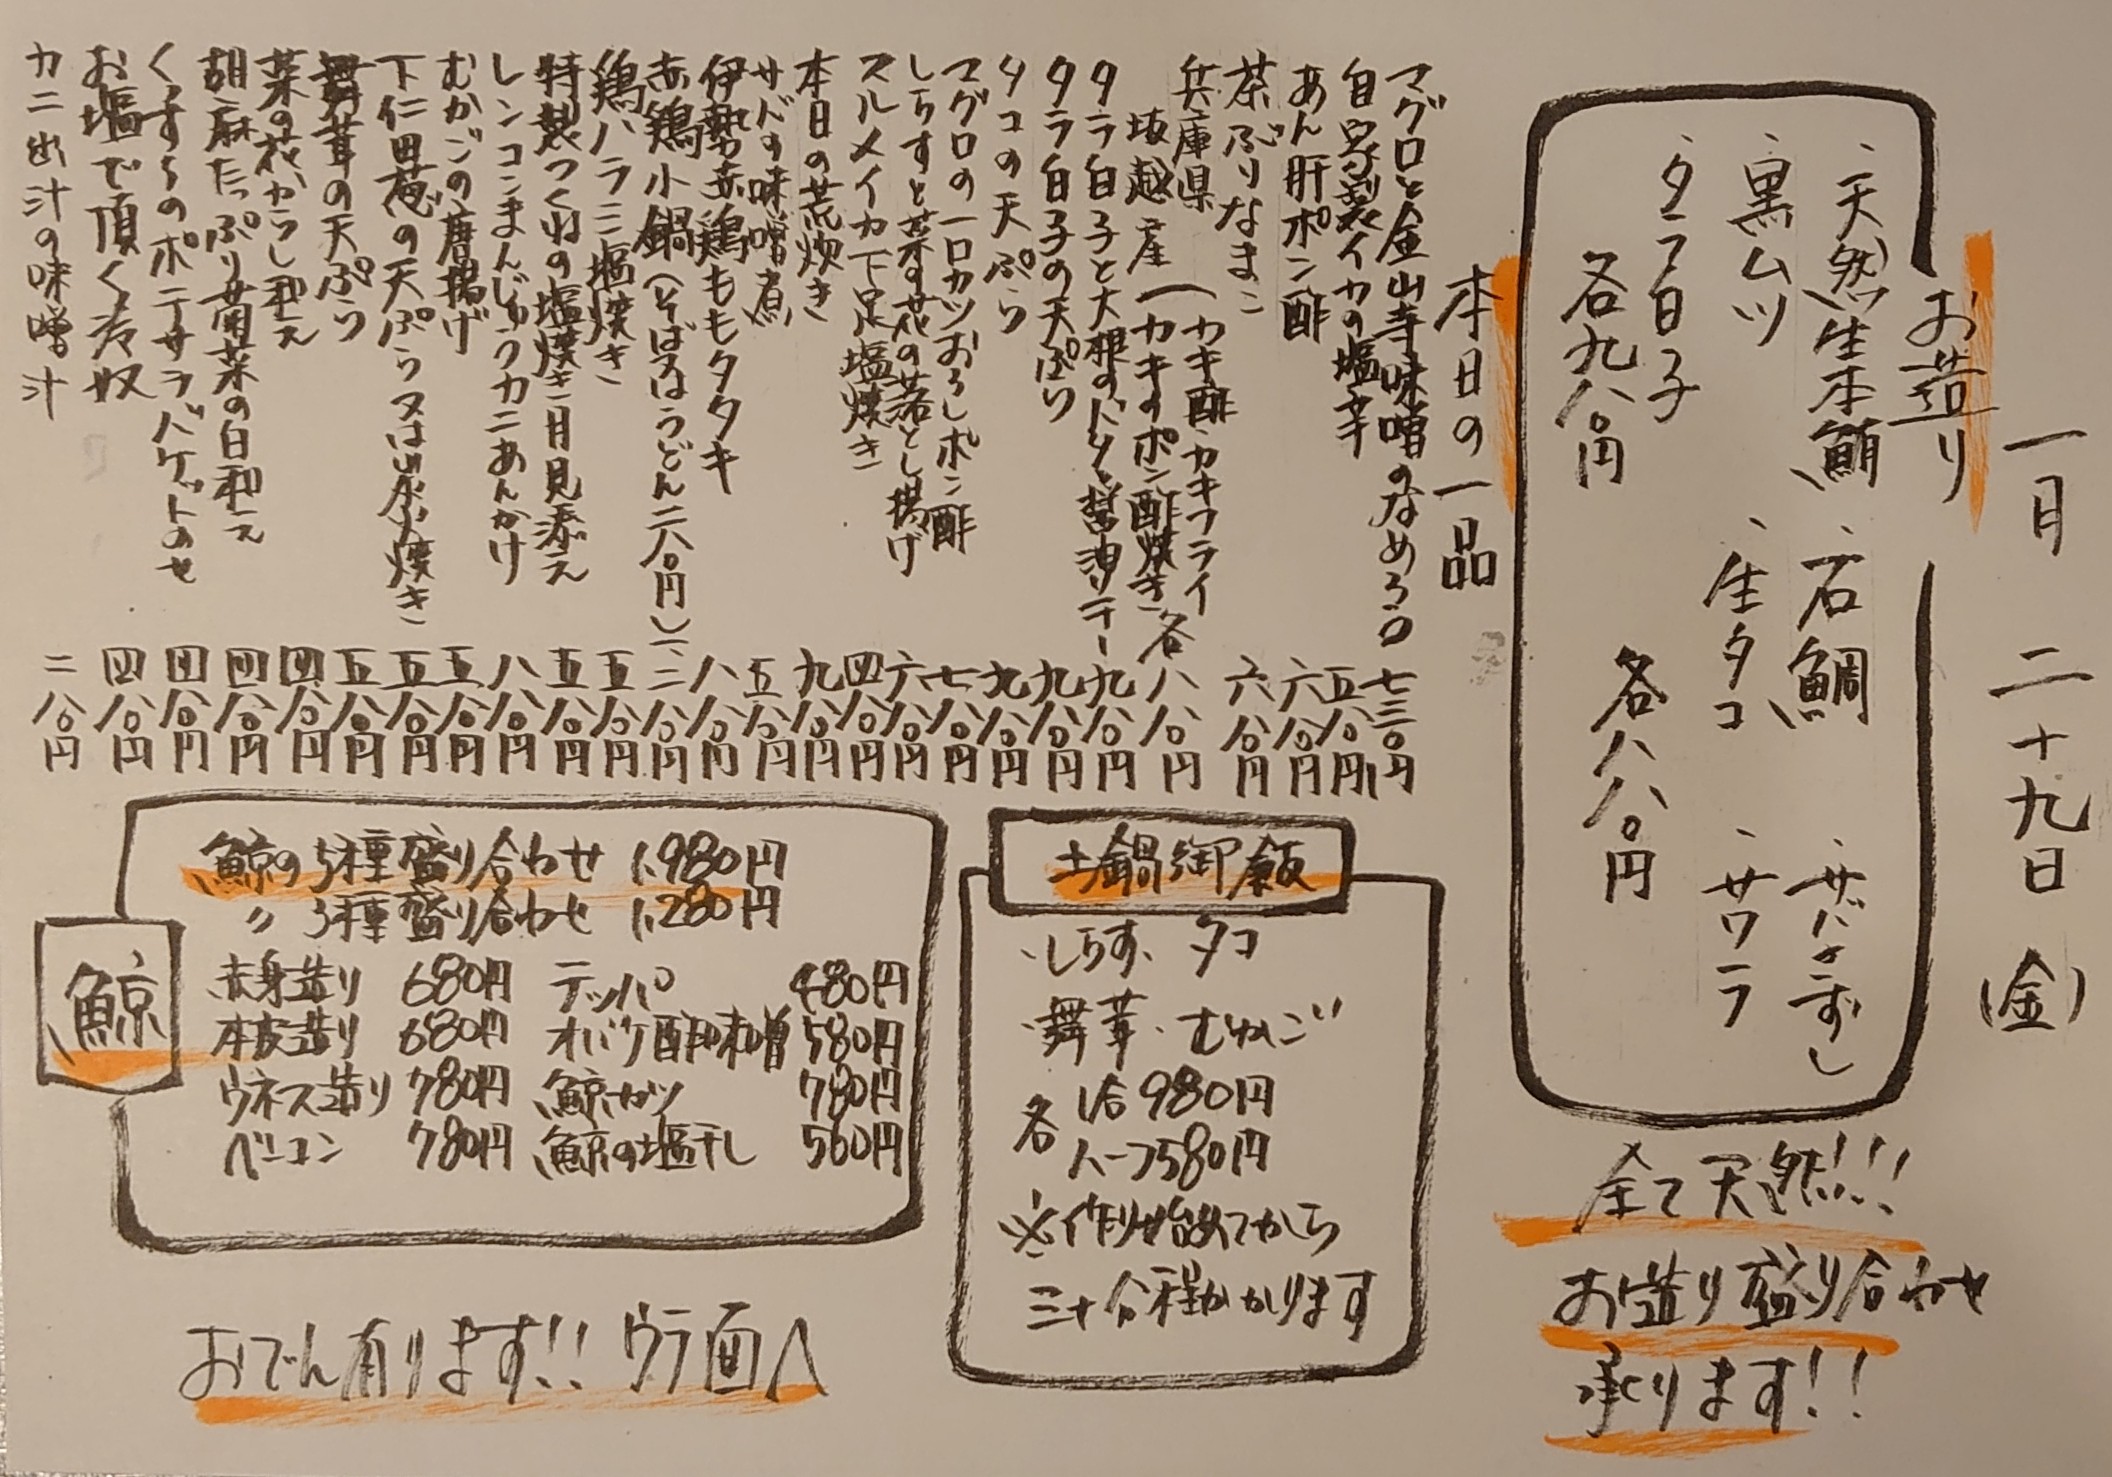 一月 二十九日 (金)
お造り
・天然生本鮪 ・石鯛 ・サバきずし
・黒ムツ ・生タコ ・サワラ
・タラ白子
各九八〇円 各八八〇円
全て天然!!!
お造り盛り合わせ
承ります!!
本日の一品
マグロと金山寺味噌のなめろう 七三〇円
自家製イカの塩辛 五八〇円
あん肝ポン酢 六八〇円
茶ぶりなまこ 六八〇円
兵庫県
坂越産 (カキ酢・カキフライ
カキのポン酢焼き 各八八〇円
タラ白子と大根のバター醤油ソテー 九八〇円
タラ白子の天ぷら 九八〇円
タコの天ぷら 九八〇円
マグロの一口カツおろしポン酢 七八〇円
しらすと菜の花の落とし揚げ 六八〇円
スルメイカ下足塩焼き 四八〇円
本日の荒炊き 九八〇円
サバの味噌煮 五八〇円
伊勢赤鶏ももタタキ 八八〇円
赤鶏小鍋(そば又はうどん二八〇円) 一、二八〇円
鶏ハラミ塩焼き 五八〇円
特製つくねの塩焼き 月見添え 五八〇円
レンコンまんじゅうカニあんかけ 八八〇円
むかごの唐揚げ 五八〇円
下仁田葱の天ぷら又は炭火焼き 五八〇円
舞茸の天ぷら 五八〇円
菜の花からし和え 四八〇円
胡麻たっぷり菊菜の白和え 四八〇円
くんすものポテサラバゲットのせ 四八〇円
お塩で頂く冷奴 四八〇円
カニ出汁の味噌汁 二八〇円
土鍋御飯
・しらす ・タコ
・舞茸 ・むかご
各 1合980円
ハーフ580円
※作り始めてから
三十分程かかります
鯨
鯨の5種盛り合わせ 1,980円
〃 3種盛り合わせ 1,280円
赤身造り 680円 テッパ 480円
本皮造り 680円 オバケ酢味噌 580円
ウネス造り 780円 鯨カツ 780円
ベーコン 780円 鯨の塩干し 560円
おでん有ります!! ウラ面へ